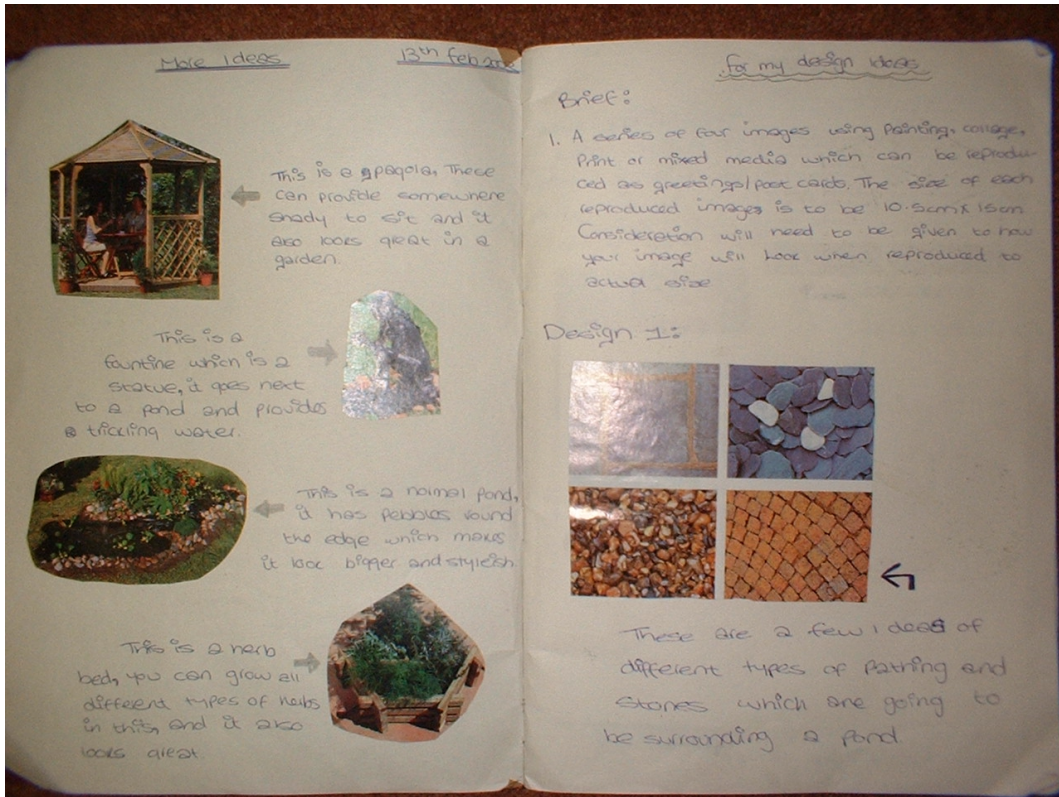 More Ideas
13th feb
This is a pagola, These
can provide somewhere
shady to sit and it
also looks great in a
garden.
This is a
fountine which is a
statue, it goes next
to a pond and provides
a trickling water.
This is a normal pond,
it has pebbles round
the edge which makes
it look bigger and stylish
This is a herb
bed, you can grow all
different types of herbs
in this, and it also
looks great.
for my design ideas
Brief:
1. A series of four images using Painting, collage,
Print or mixed media which can be reprodu-
ced as greetings/post cards. The size of each
reproduced images is to be 10.5cm x 15cm
Consideration will need to be given to how
your image will look when reproduced to
actual size
Design 1:
These are a few ideas of
different types of Pathing and
stones which are going to
be surrounding a pond.